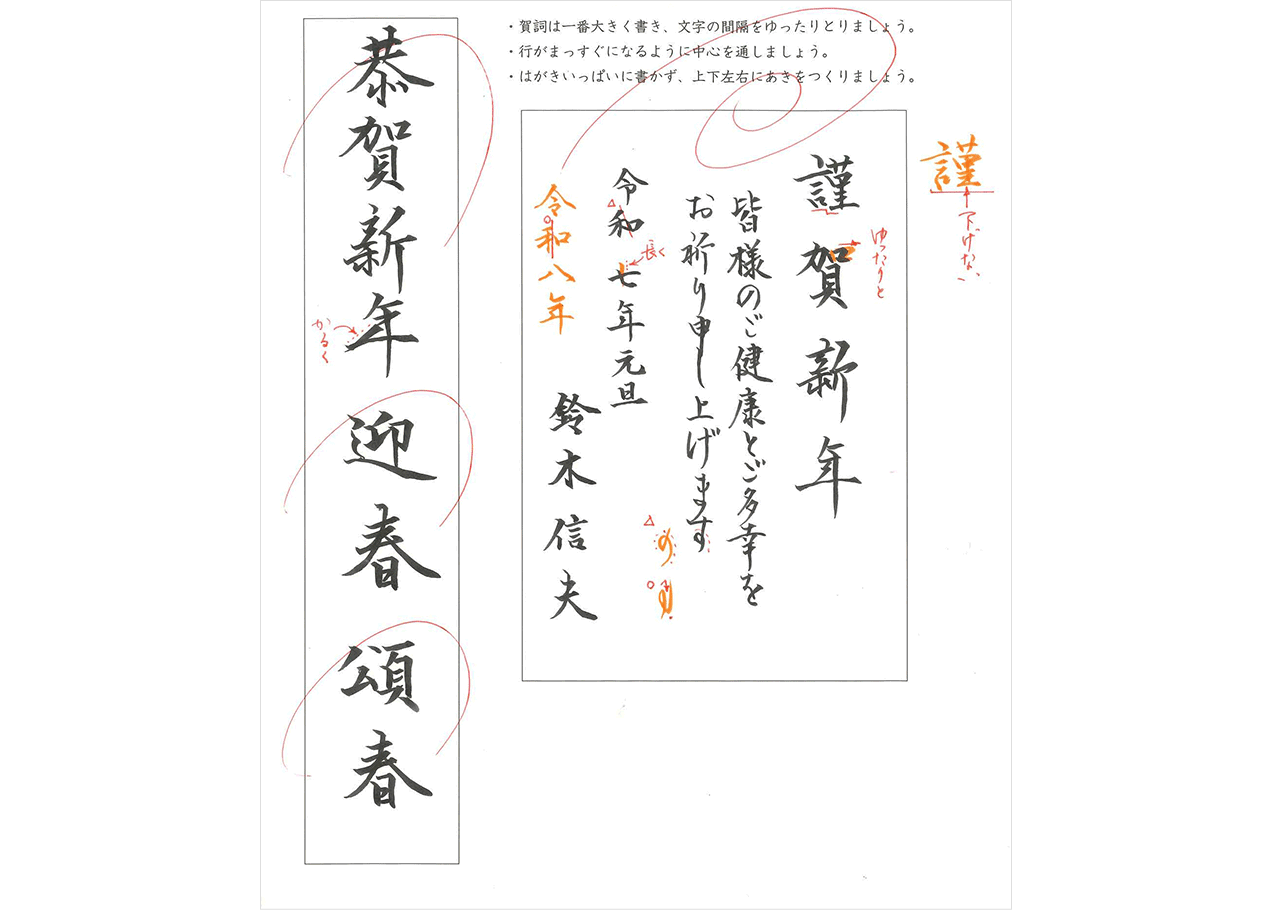 ・賀詞は一番大きく書き、文字の間隔をゆったりとりましょう。
・行がまっすぐになるように中心を通しましょう。
・はがきいっぱいに書かず、上下左右にあきをつくりましょう。
謹
下げない
ゆったりと
謹賀新年
皆様のご健康とご多幸を
お祈り申し上げます
長く
令和七年元旦
令和八年
鈴木信夫
恭賀新年
かるく
迎春
頌春